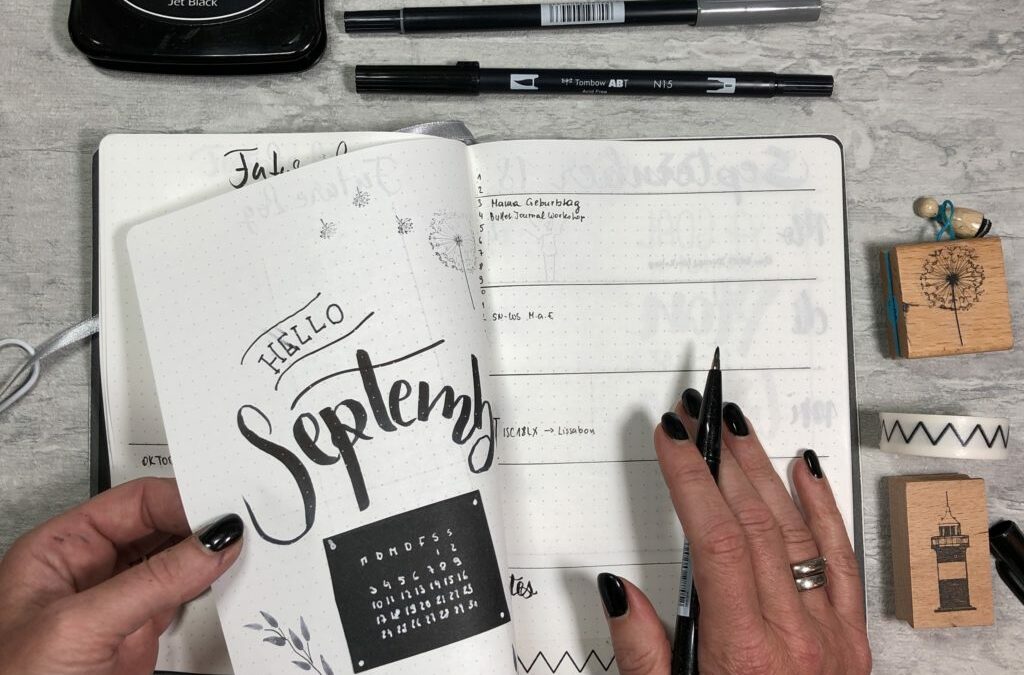 Jet Black
Tombow ABT N15
Acid Free
HELLO
Septemb
M D M D F S S
1 2
3 4 5 6 7 8 9
10 11 12 13 14 15 16
17 18 19 20 21 22 23
24 25 26 27 28 29
OKTO
1
2
3 Mama Geburtstag
4 Bullet Journal Workshop
5
6
7
8
9
0
1
ISC18LX → Lissabon
tes